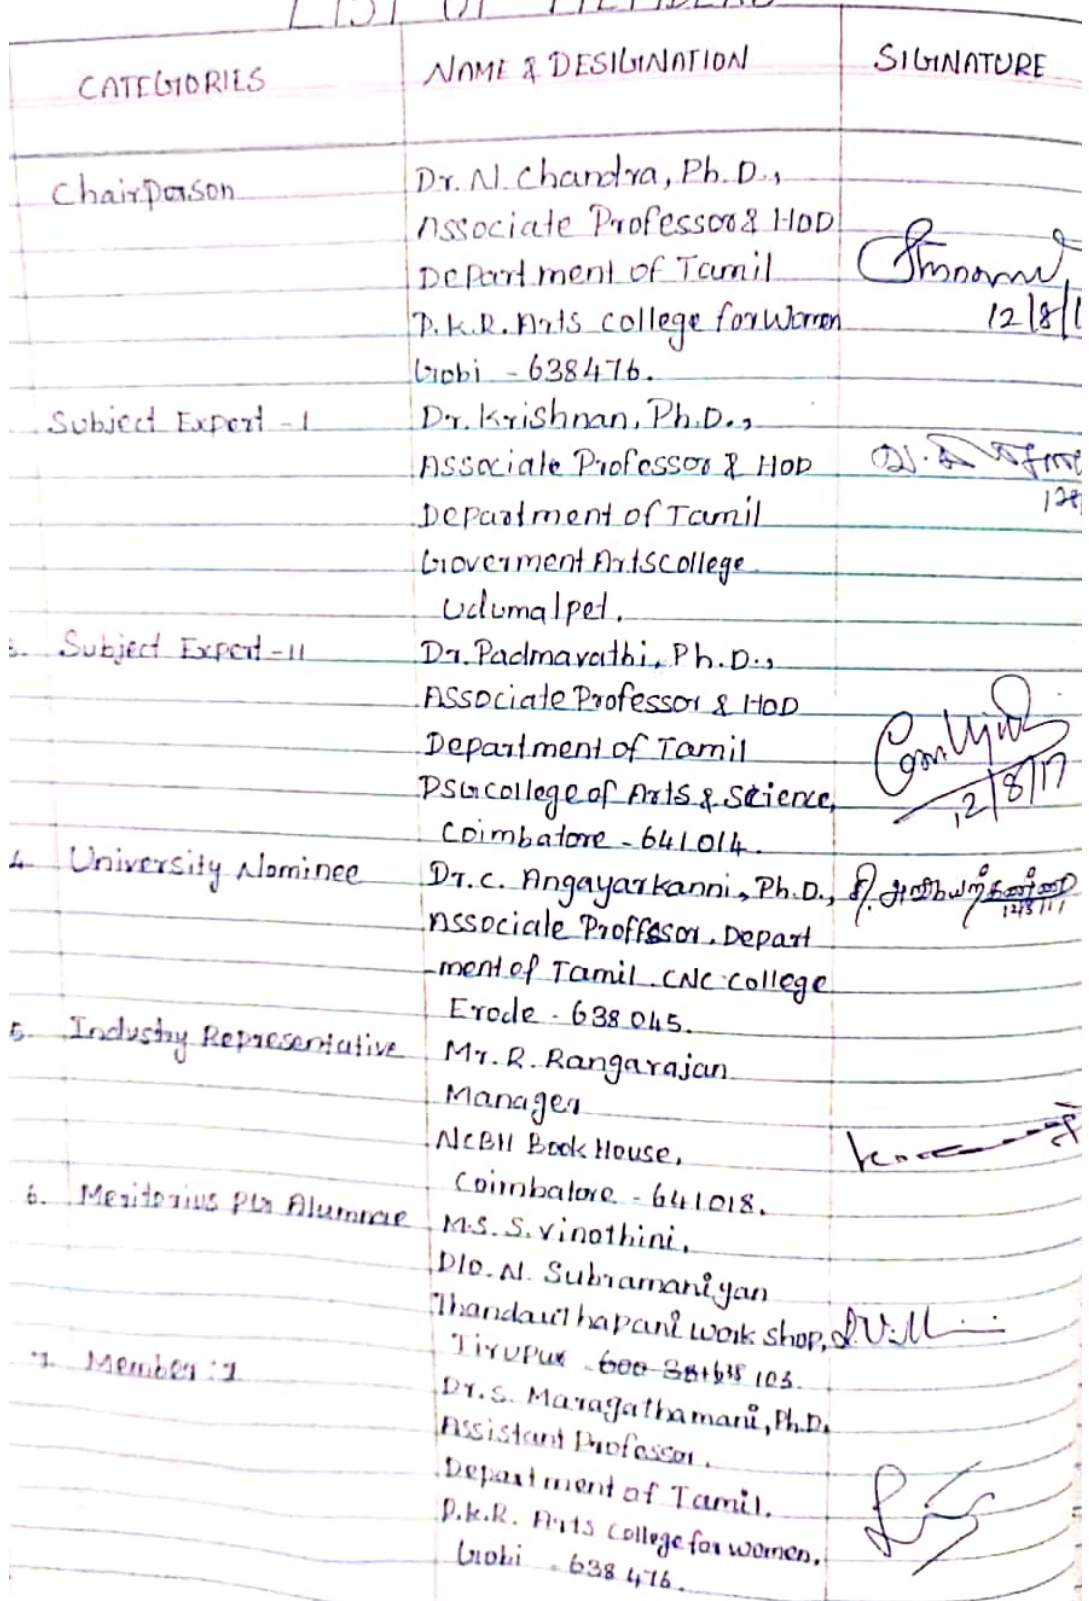 LIST OF MEMBERS
CATEGORIES NAME & DESIGINATION SIGINATURE
Chairperson Dr. N. Chandra, Ph.D.,
Associate Professor & HOD
Department of Tamil
P.K.R. Arts college for Women 12/8/1
Gobi - 638476.
Subject Expert - I Dr. Krishnan, Ph.D.,
Associate Professor & HOD
Department of Tamil
Goverment Arts College
Udumalpet.
Subject Expert - II Dr. Padmavathi, Ph.D.,
Associate Professor & HOD
Department of Tamil
PSG college of Arts & Science, 12/8/17
Coimbatore - 641014.
4. University Nominee Dr. C. Angayarkanni, Ph.D., சி. அங்கயற்கண்ணி
Associate Proffssor, Depart
-ment of Tamil. CNC College
Erode - 638045.
5. Industry Representative Mr. R. Rangarajan
Manager
NCBH Book House,
Coimbatore - 641018.
6. Meritorius PG Alumnae M.S. S. Vinothini,
D/o. N. Subramaniyan
Thandauthapani work shop,
Tirupur 638 103.
7. Member: 1 Dr. S. Maragathamani, Ph.D.
Assistant Professor.
Department of Tamil.
P.K.R. Arts college for women.
Gobi - 638 476.